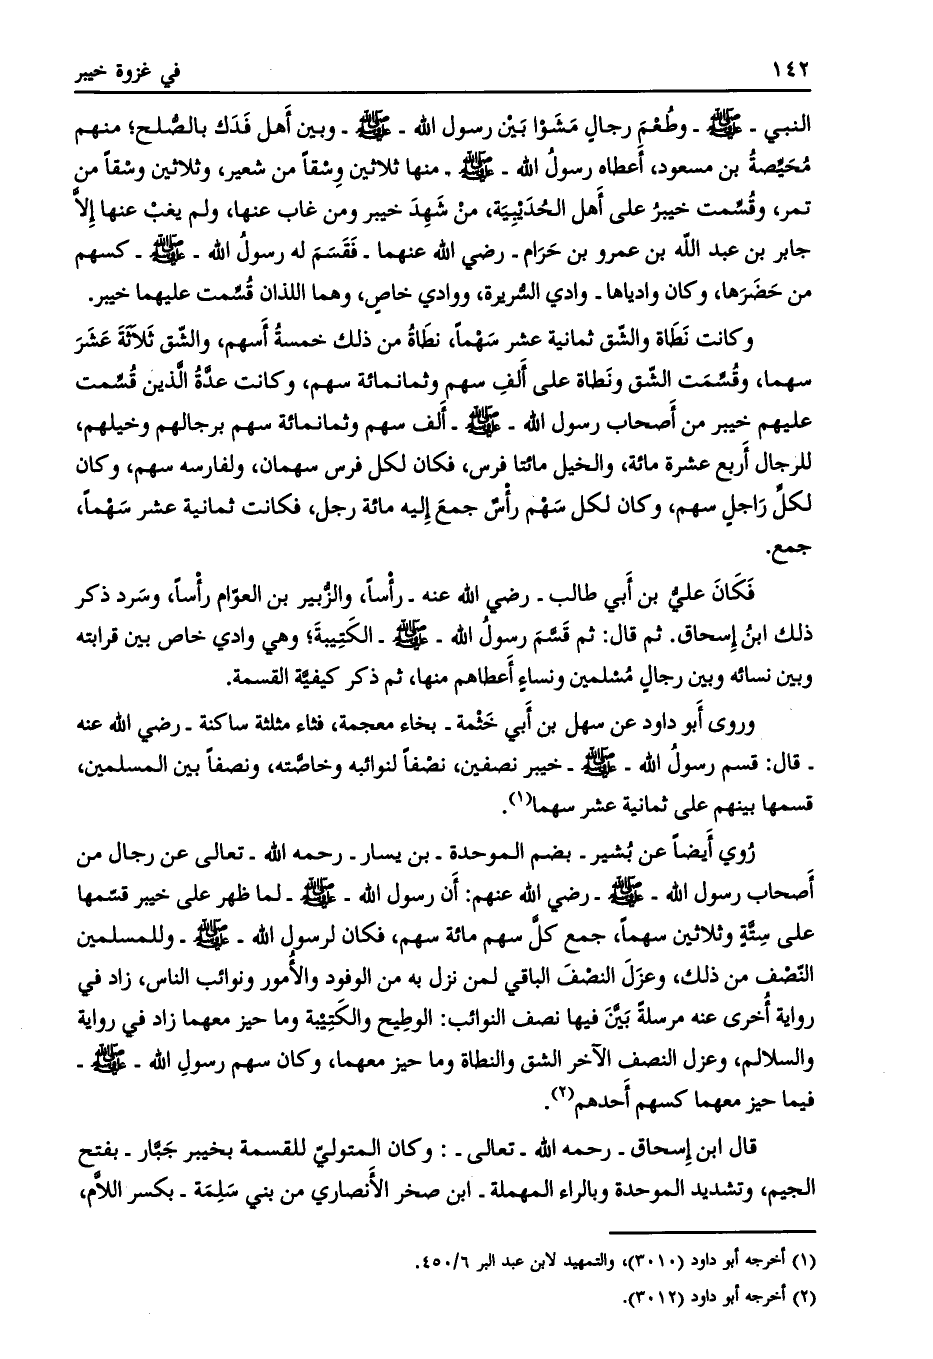 ١٤٢ في غزوة خيبر
النبي ـ ﷺ ـ وطُعْمَ رجالٍ مَشَوْا بَيْن رسول الله ـ ﷺ ـ وبين أَهل فَدَك بالصُّلح؛ منهم
مُحَيِّصةُ بن مسعود، أَعطاه رسولُ الله ـ ﷺ ـ منها ثلاثين وِسْقاً من شعير، وثلاثين وسْقاً من
تمر، وقُسِّمت خيبرُ على أَهل الحُدَيْبِيَة، منْ شَهِدَ خيبر ومن غاب عنها، ولم يغبْ عنها إِلاَّ
جابر بن عبد اللَّه بن عمرو بن حَرَام ـ رضي الله عنهما ـ فَقَسَمَ له رسولُ الله ـ ﷺ ـ كسهم
من حَضَرَها، وكان وادياها ـ وادي السُّريرة، ووادي خاصٍ، وهما اللذان قُسِّمت عليهما خيبر.
وكانت نَطَاة والشِّق ثمانية عشر سَهْماً، نطَاةُ من ذلك خمسةُ أَسهم، والشِّق ثَلاَثَةَ عَشَرَ
سهما، وقُسِّمَت الشِّق ونَطاة على أَلفِ سهم وثمانمائة سهم، وكانت عدَّةُ الَّذين قُسِّمت
عليهم خيبر من أَصحاب رسول الله ـ ﷺ ـ أَلف سهم وثمانمائة سهم برجالهم وخيلهم،
للرجال أَربع عشرة مائة، والخيل مائتا فرس، فكان لكل فرس سهمان، ولفارسه سهم، وكان
لكلِّ رَاجلٍ سهم، وكان لكل سَهْم رأْسٌ جمعَ إِليه مائة رجل، فكانت ثمانية عشر سَهْماً،
جمع.
فَكَانَ عليُّ بن أَبي طالب ـ رضي الله عنه ـ رأْساً، والزُّبير بن العوّام رأْساً، وسَرد ذكر
ذلك ابنُ إِسحاق. ثم قال: ثم قَسَّمَ رسولُ الله ـ ﷺ ـ الكَتِيبةَ؛ وهي وادي خاص بين قرابته
وبين نسائه وبين رجالٍ مُسْلمين ونساءٍ أَعطاهم منها، ثم ذكر كيفيَّة القسمة.
وروى أَبو داود عن سهل بن أَبي خَثْمة ـ بخاء معجمة، فثاء مثلثة ساكنة ـ رضي الله عنه
ـ قال: قسم رسولُ الله ـ ﷺ ـ خيبر نصفين، نصْفاً لنوائبه وخاصَّته، ونصفاً بين المسلمين،
قسمها بينهم على ثمانية عشر سهما(١).
رُوي أَيضاً عن بُشير ـ بضم الموحدة ـ بن يسار ـ رحمه الله ـ تعالى عن رجال من
أَصحاب رسول الله ـ ﷺ ـ رضي الله عنهم: أَن رسول الله ـ ﷺ ـ لما ظهر على خيبر قسّمها
على سِتَّةٍ وثلاثين سهماً، جمع كلَّ سهم مائة سهم، فكان لرسول الله ـ ﷺ ـ وللمسلمين
النّصْف من ذلك، وعزَلَ النصْفَ الباقي لمن نزل به من الوفود والأُمور ونوائب الناس، زاد في
رواية أُخرى عنه مرسلةً بَيَّنَ فيها نصف النوائب: الوطِيح والكَتِيْبة وما حيز معهما زاد في رواية
والسلالم، وعزل النصف الآخر الشق والنطاة وما حيز معهما، وكان سهم رسولِ الله ـ ﷺ ـ
فيما حيز معهما كسهم أَحدهم(٢).
قال ابن إِسحاق ـ رحمه الله ـ تعالى ـ : وكان المتوليّ للقسمة بخيبر جَبَّار ـ بفتح
الجيم، وتشديد الموحدة وبالراء المهملة ـ ابن صخر الأَنصاري من بني سَلِمَة ـ بكسر اللاَّم،
(١) أخرجه أبو داود (٣٠١٠)، والتمهيد لابن عبد البر ٤٥٠/٦.
(٢) أخرجه أبو داود (٣٠١٢).